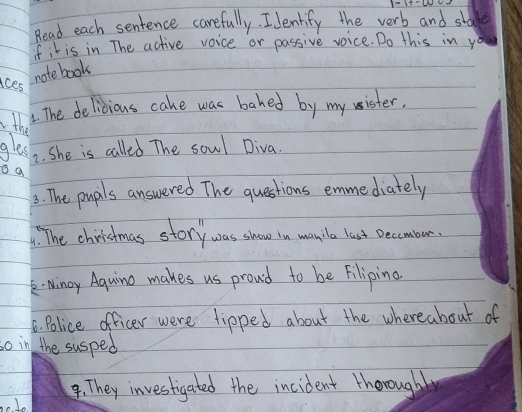 Read each sentence carefully. Identify the verb and state
if it is in The active voice or passive voice. Do this in you
notebook
1. The delicious cake was baked by my sister.
2. She is called The soul Diva.
3. The pupils answered The questions emmediately
4. "The christmas story" was show in manila last December.
5. Ninoy Aquino makes us proud to be Filipino
6. Police officer were tipped about the whereabout of
the susped
7. They investigated the incident thoroughly